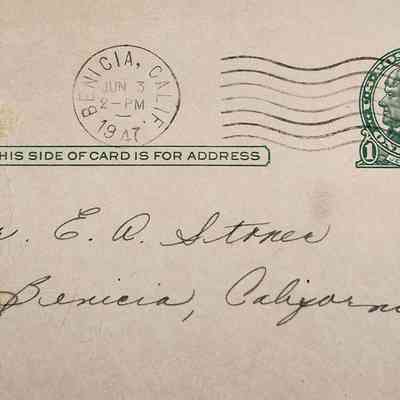 BENICIA, CALIF.
JUN 3
2-PM
1947
HIS SIDE OF CARD IS FOR ADDRESS
1
r. E. A. Stoner
Benicia, Californ